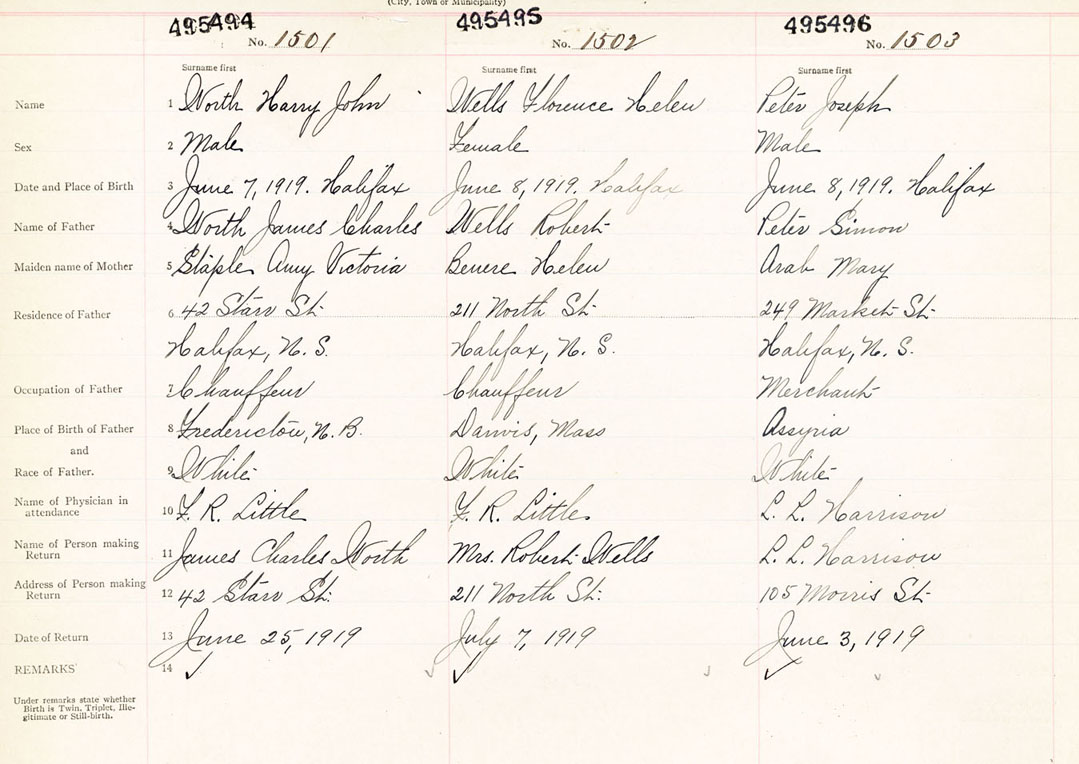 (City, Town or Municipality)
495494 495495 495496
No. 1501 No. 1502 No. 1503
Surname first Surname first Surname first
Name 1 Worth Harry John Wells Florence Helen Peter Joseph
Sex 2 Male Female Male
Date and Place of Birth 3 June 7, 1919. Halifax June 8, 1919. Halifax June 8, 1919. Halifax
Name of Father 4 Worth James Charles Wells Robert Peter Simon
Maiden name of Mother 5 Staples Amy Victoria Benere Helen Arab Mary
Residence of Father 6 42 Starr St. 211 North St. 249 Market St.
Halifax, N. S. Halifax, N. S. Halifax, N. S.
Occupation of Father 7 Chauffeur Chauffeur Merchant
Place of Birth of Father 8 Fredericton, N. B. Danvis, Mass Assyria
and
Race of Father. 9 White White White
Name of Physician in
attendance 10 F. R. Little F. R. Little L. L. Harrison
Name of Person making
Return 11 James Charles Worth Mrs. Robert Wells L. L. Harrison
Address of Person making
Return 12 42 Starr St. 211 North St. 105 Morris St.
Date of Return 13 June 25, 1919 July 7, 1919 June 3, 1919
REMARKS 14 ✓ ✓ ✓
Under remarks state whether
Birth is Twin, Triplet, Ille-
gitimate or Still-birth.